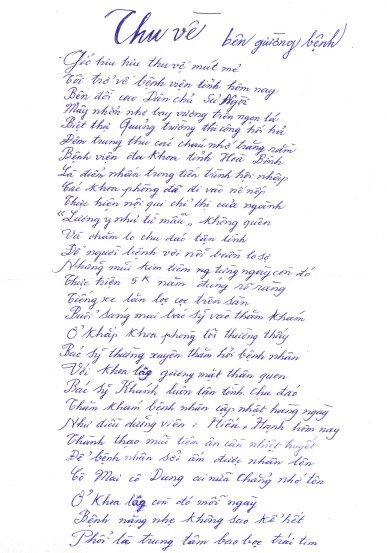 Thu về bên giường bệnh
Gió hiu hiu thu về mát mẻ
Tôi trở về bệnh viện tỉnh hôm nay
Bên đồi cao Dân chủ Sủ Ngòi
Mây nhởn nhơ bay vương trên ngọn lá
Biệt thự Quảng trường thi công hối hả
Đêm trung thu các cháu nhớ trăng rằm
Bệnh viện đa khoa tỉnh Hoà Bình
Là điểm nhấn trong tiến trình hội nhập
Các khoa phòng đã đi vào nề nếp
Thực hiện nội qui chỉ thị của ngành
"Lương y như từ mẫu" không quên
Và chăm lo chu đáo tận tình
Để người bệnh vơi nỗi buồn lo sợ
Những mũi kim tiêm ng từng ngày còn đó
Thực hiện 5K năm đúng rõ ràng
Tiếng xe lăn lọc cọc trên sàn
Buổi sáng mai bác sỹ vào thăm khám
Ở khắp khoa phòng tôi thường thấy
Bác sỹ thường xuyên thăm hỏi bệnh nhân
Với khoa lão gương mặt thân quen
Bác sỹ Khánh luôn tận tình chu đáo
Thăm khám bệnh nhân cập nhật hàng ngày
Như điều dưỡng viên: Hiếu, Hạnh hôm nay
Thành thạo mũi tiêm ân cần nhiệt huyết
Để bệnh nhân sởi ấm được nhân lên
Cô Mai cô Dung cú nữa Thắng nhớ tên
Ở khoa lão còn đó mỗi ngày
Bệnh nặng nhẹ không sao kể hết
Phổi là trung tâm bao bọc trái tim